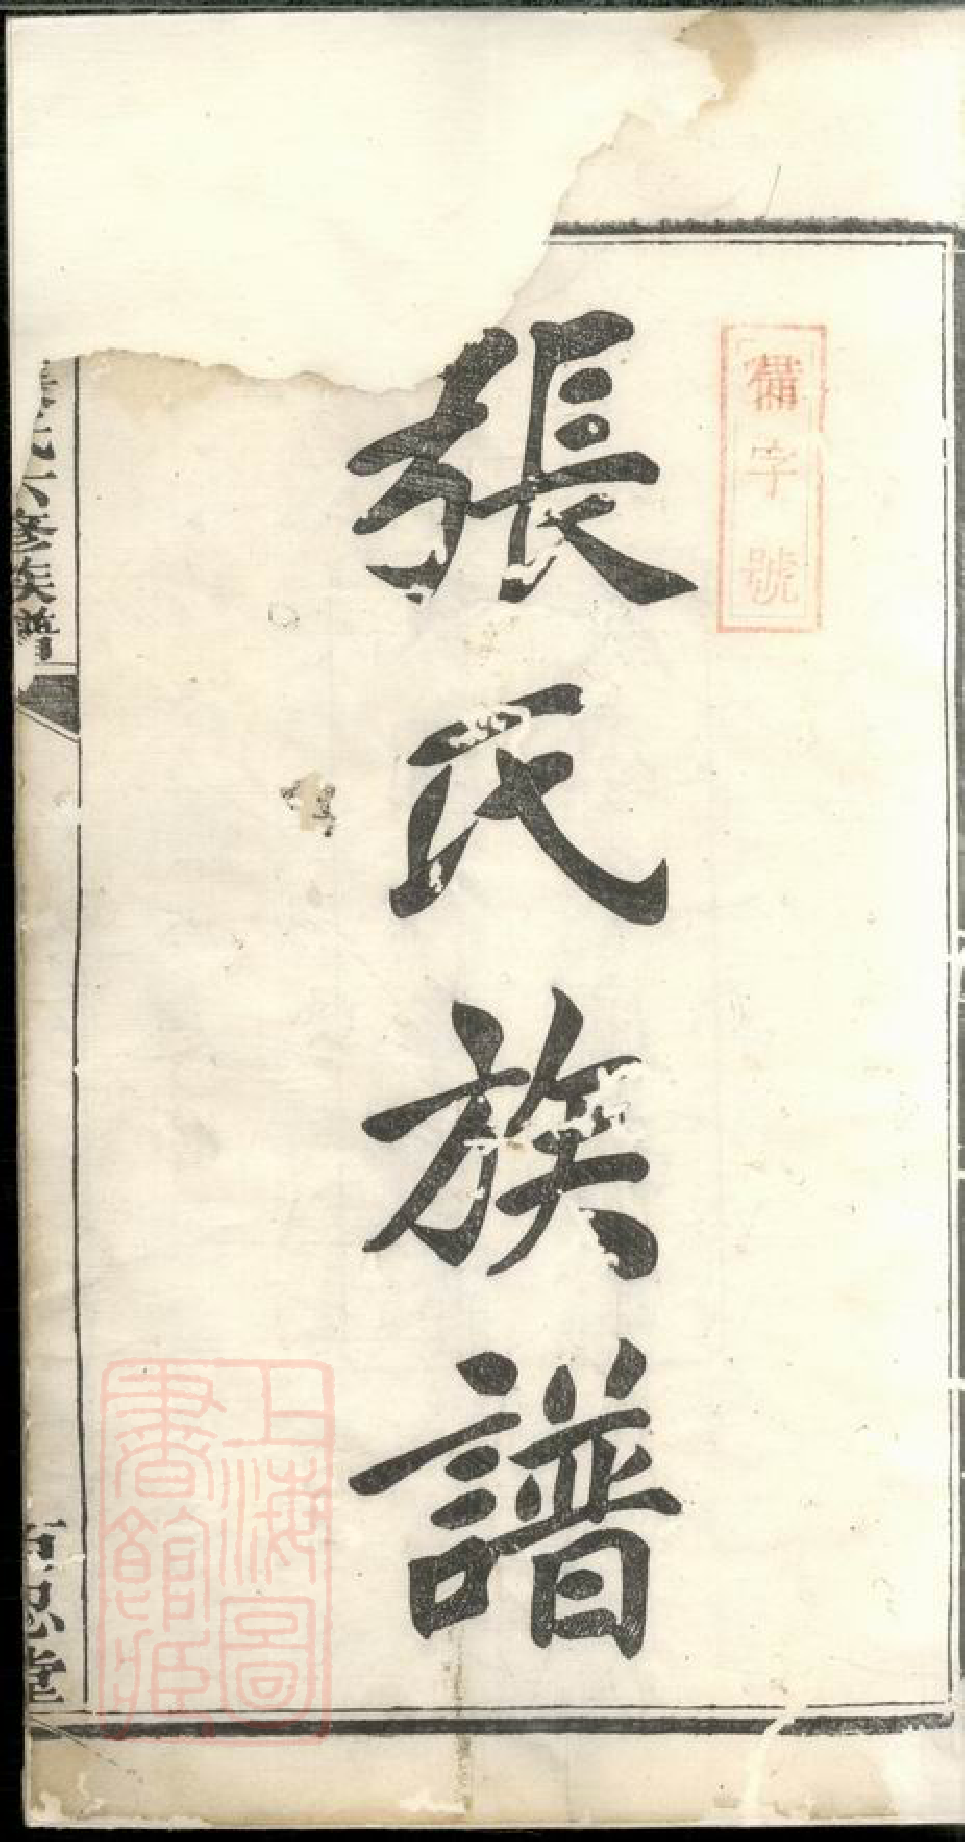 備字號
張氏族譜
上海圖
書館藏
六修族譜
思堂